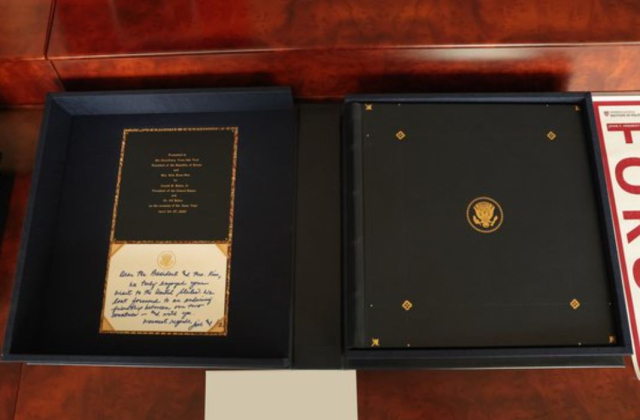 Presented to
His Excellency Yoon Suk Yeol
President of the Republic of Korea
and
Mrs. Kim Keon Hee
by
Joseph R. Biden, Jr.
President of the United States
and
Dr. Jill Biden
on the occasion of the State Visit
April 2023
Dear Mr. President and Mrs. Kim,
We truly enjoyed your
visit to the United States. We
look forward to an enduring
friendship between our two
countries — and with you
Warmest regards,
FORU